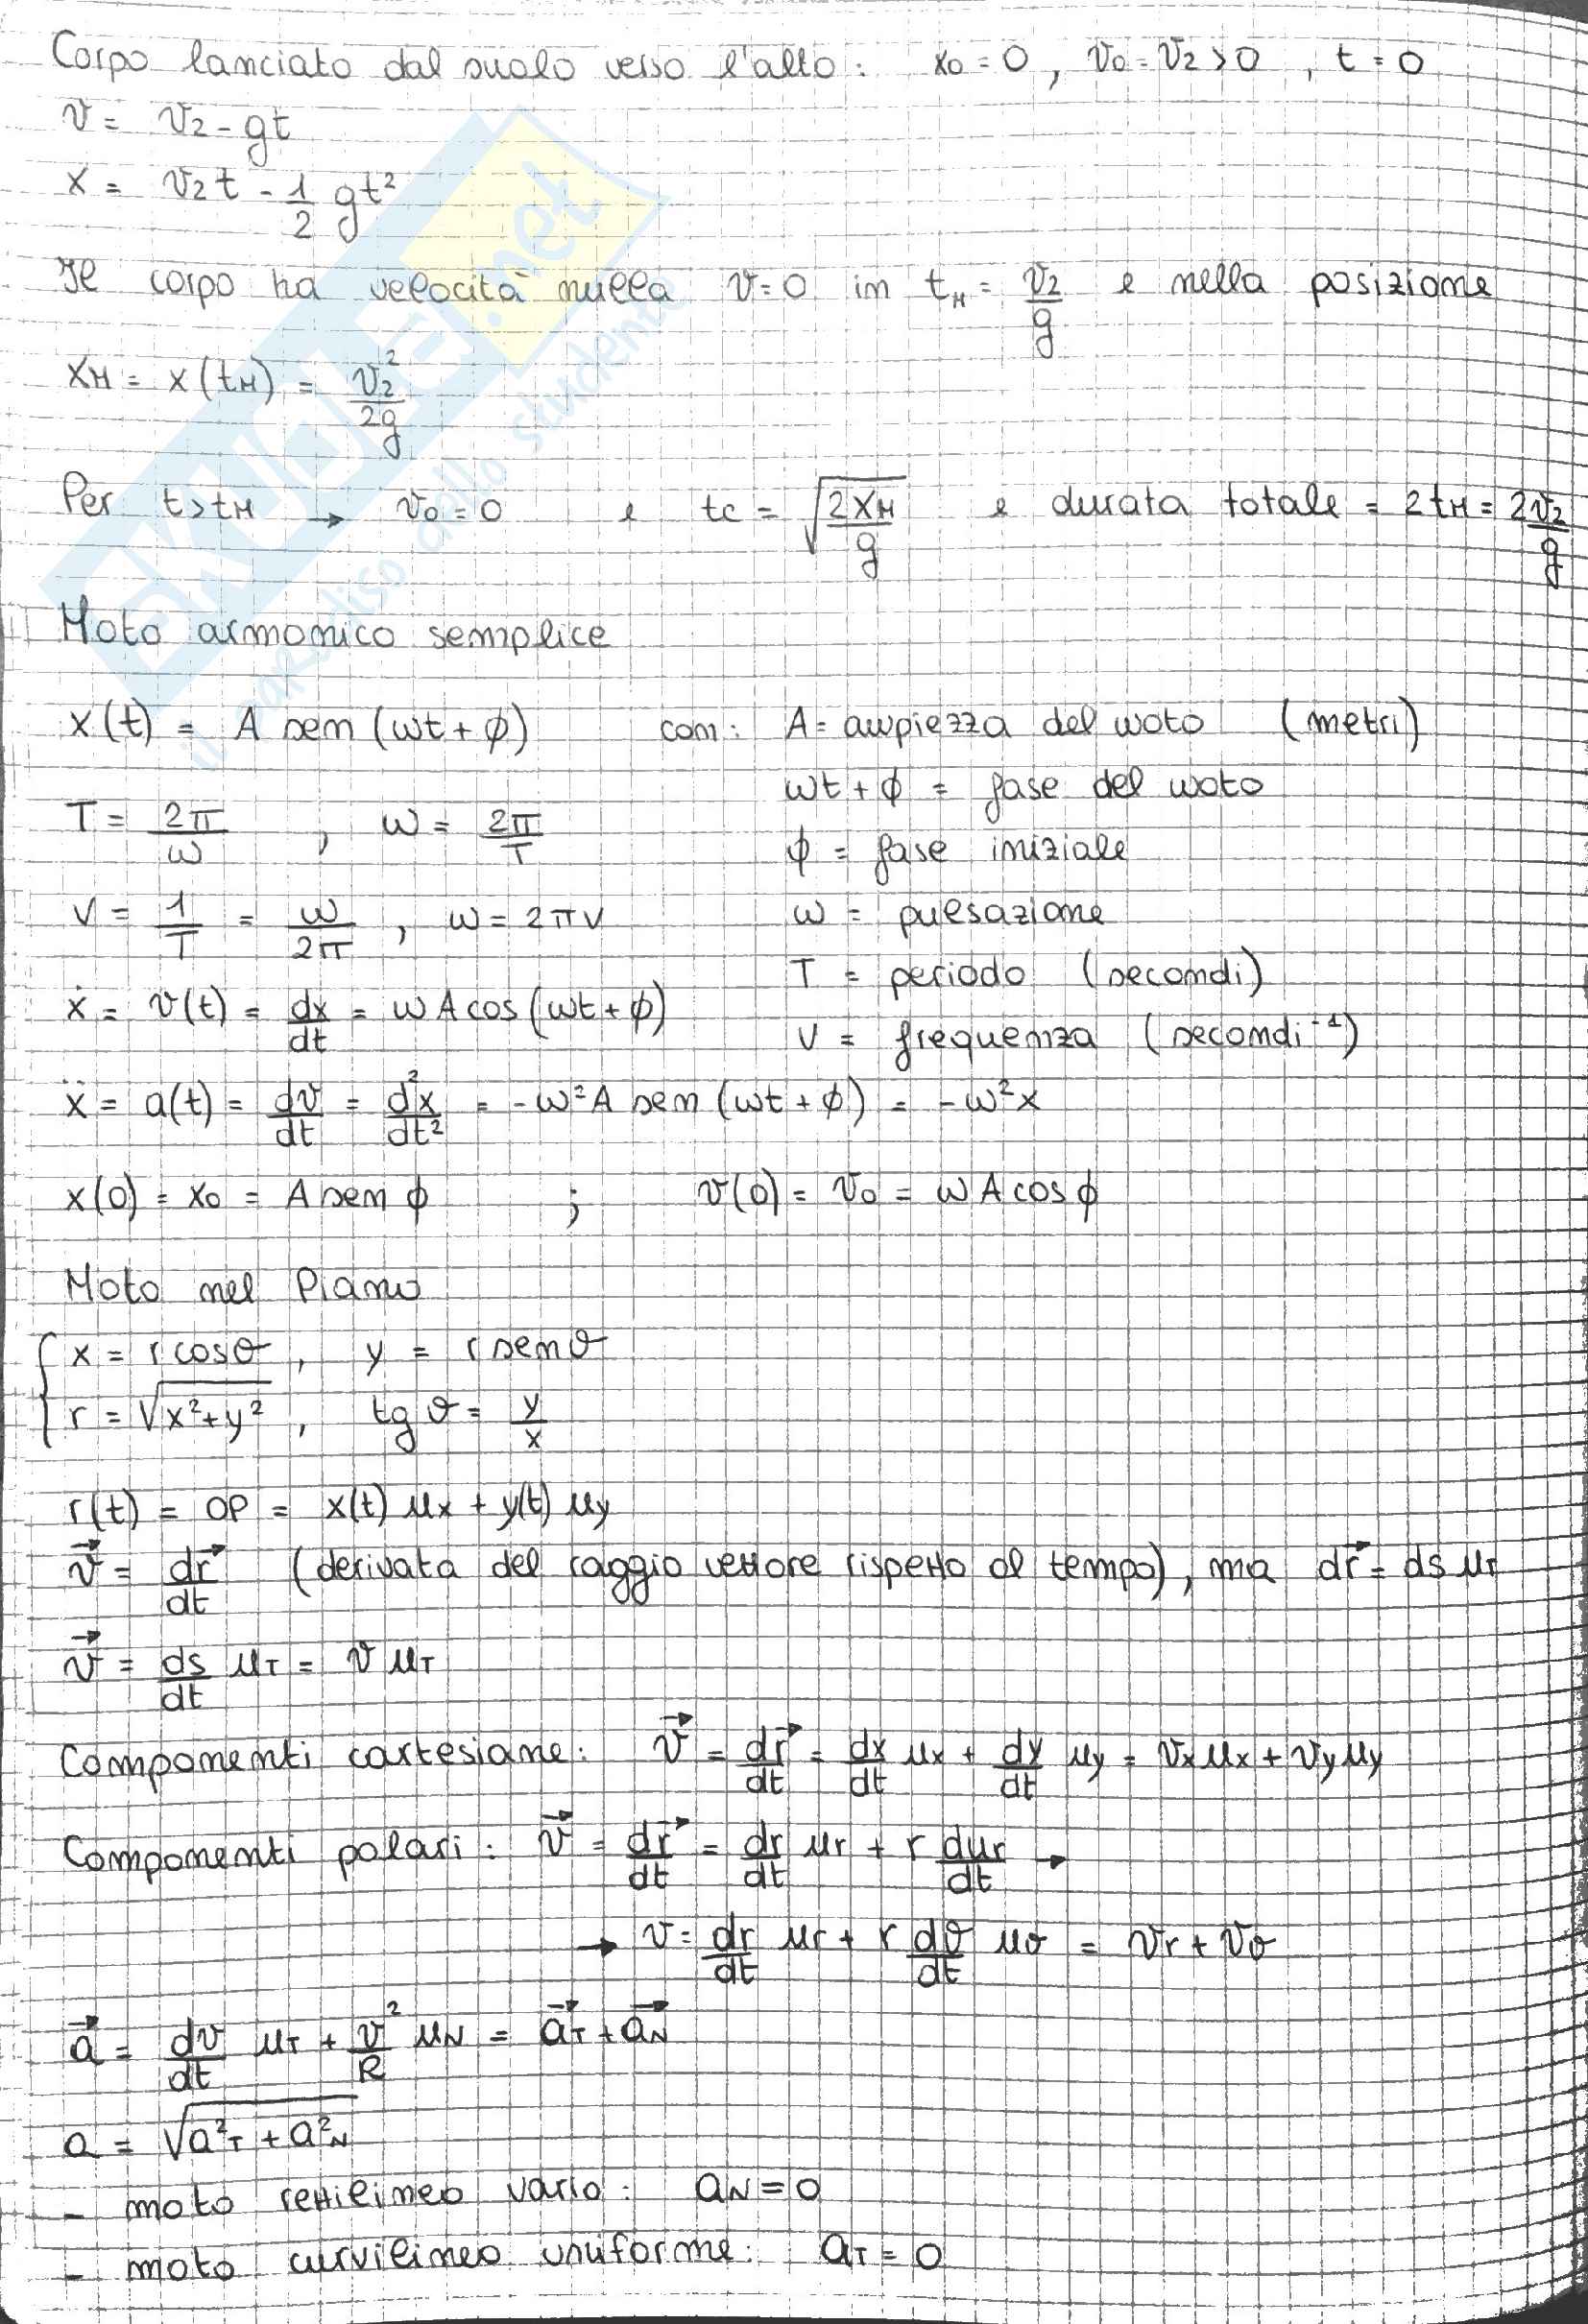 Corpo lanciato dal suolo verso l'alto: x₀ = 0, v₀ = v₂ > 0, t = 0
v = v₂ - gt
x = v₂t - 1/2 gt²
Il corpo ha velocità nulla v = 0 in t_M = v₂/g e nella posizione
x_M = x(t_M) = v₂²/2g
Per t > t_M → v₀ = 0 e t_c = √(2x_M/g) e durata totale = 2t_M = 2v₂/g
Moto armonico semplice
x(t) = A sen(ωt + φ) con: A = ampiezza del moto (metri)
ωt + φ = fase del moto
T = 2π/ω , ω = 2π/T
φ = fase iniziale
ν = 1/T = ω/2π , ω = 2πν
ω = pulsazione
T = periodo (secondi)
ẋ = v(t) = dx/dt = ωA cos(ωt + φ)
ν = frequenza (secondi⁻¹)
ẍ = a(t) = dv/dt = d²x/dt² = -ω²A sen(ωt + φ) = -ω²x
x(0) = x₀ = A sen φ ; v(0) = v₀ = ωA cos φ
Moto nel Piano
x = r cosθ , y = r senθ
r = √(x² + y²) , tg θ = y/x
r(t) = OP = x(t) u_x + y(t) u_y
v⃗ = dr⃗/dt (derivata del raggio vettore rispetto al tempo), ma dr⃗ = ds u_T
v⃗ = ds/dt u_T = v u_T
Componenti cartesiane: v⃗ = dr⃗/dt = dx/dt u_x + dy/dt u_y = v_x u_x + v_y u_y
Componenti polari: v⃗ = dr⃗/dt = dr/dt u_r + r du_r/dt →
→ v = dr/dt u_r + r dθ/dt u_θ = v_r + v_θ
a⃗ = dv/dt u_T + v²/R u_N = a⃗_T + a⃗_N
a = √(a²_T + a²_N)
- moto rettilineo vario: a_N = 0
- moto curvilineo uniforme: a_T = 0
.net
dello studente